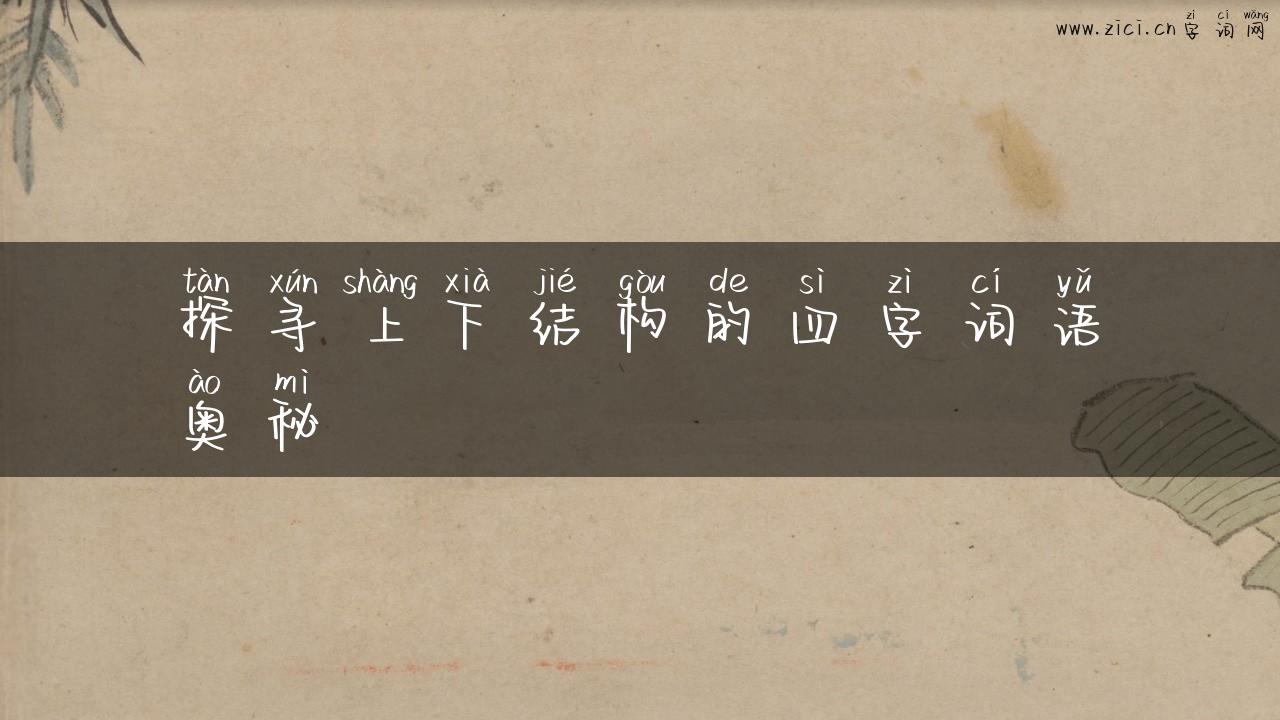 zì cí wǎng
www.zici.cn 字词网
tàn xún shàng xià jié gòu de sì zì cí yǔ
探寻上下结构的四字词语
ào mì
奥秘